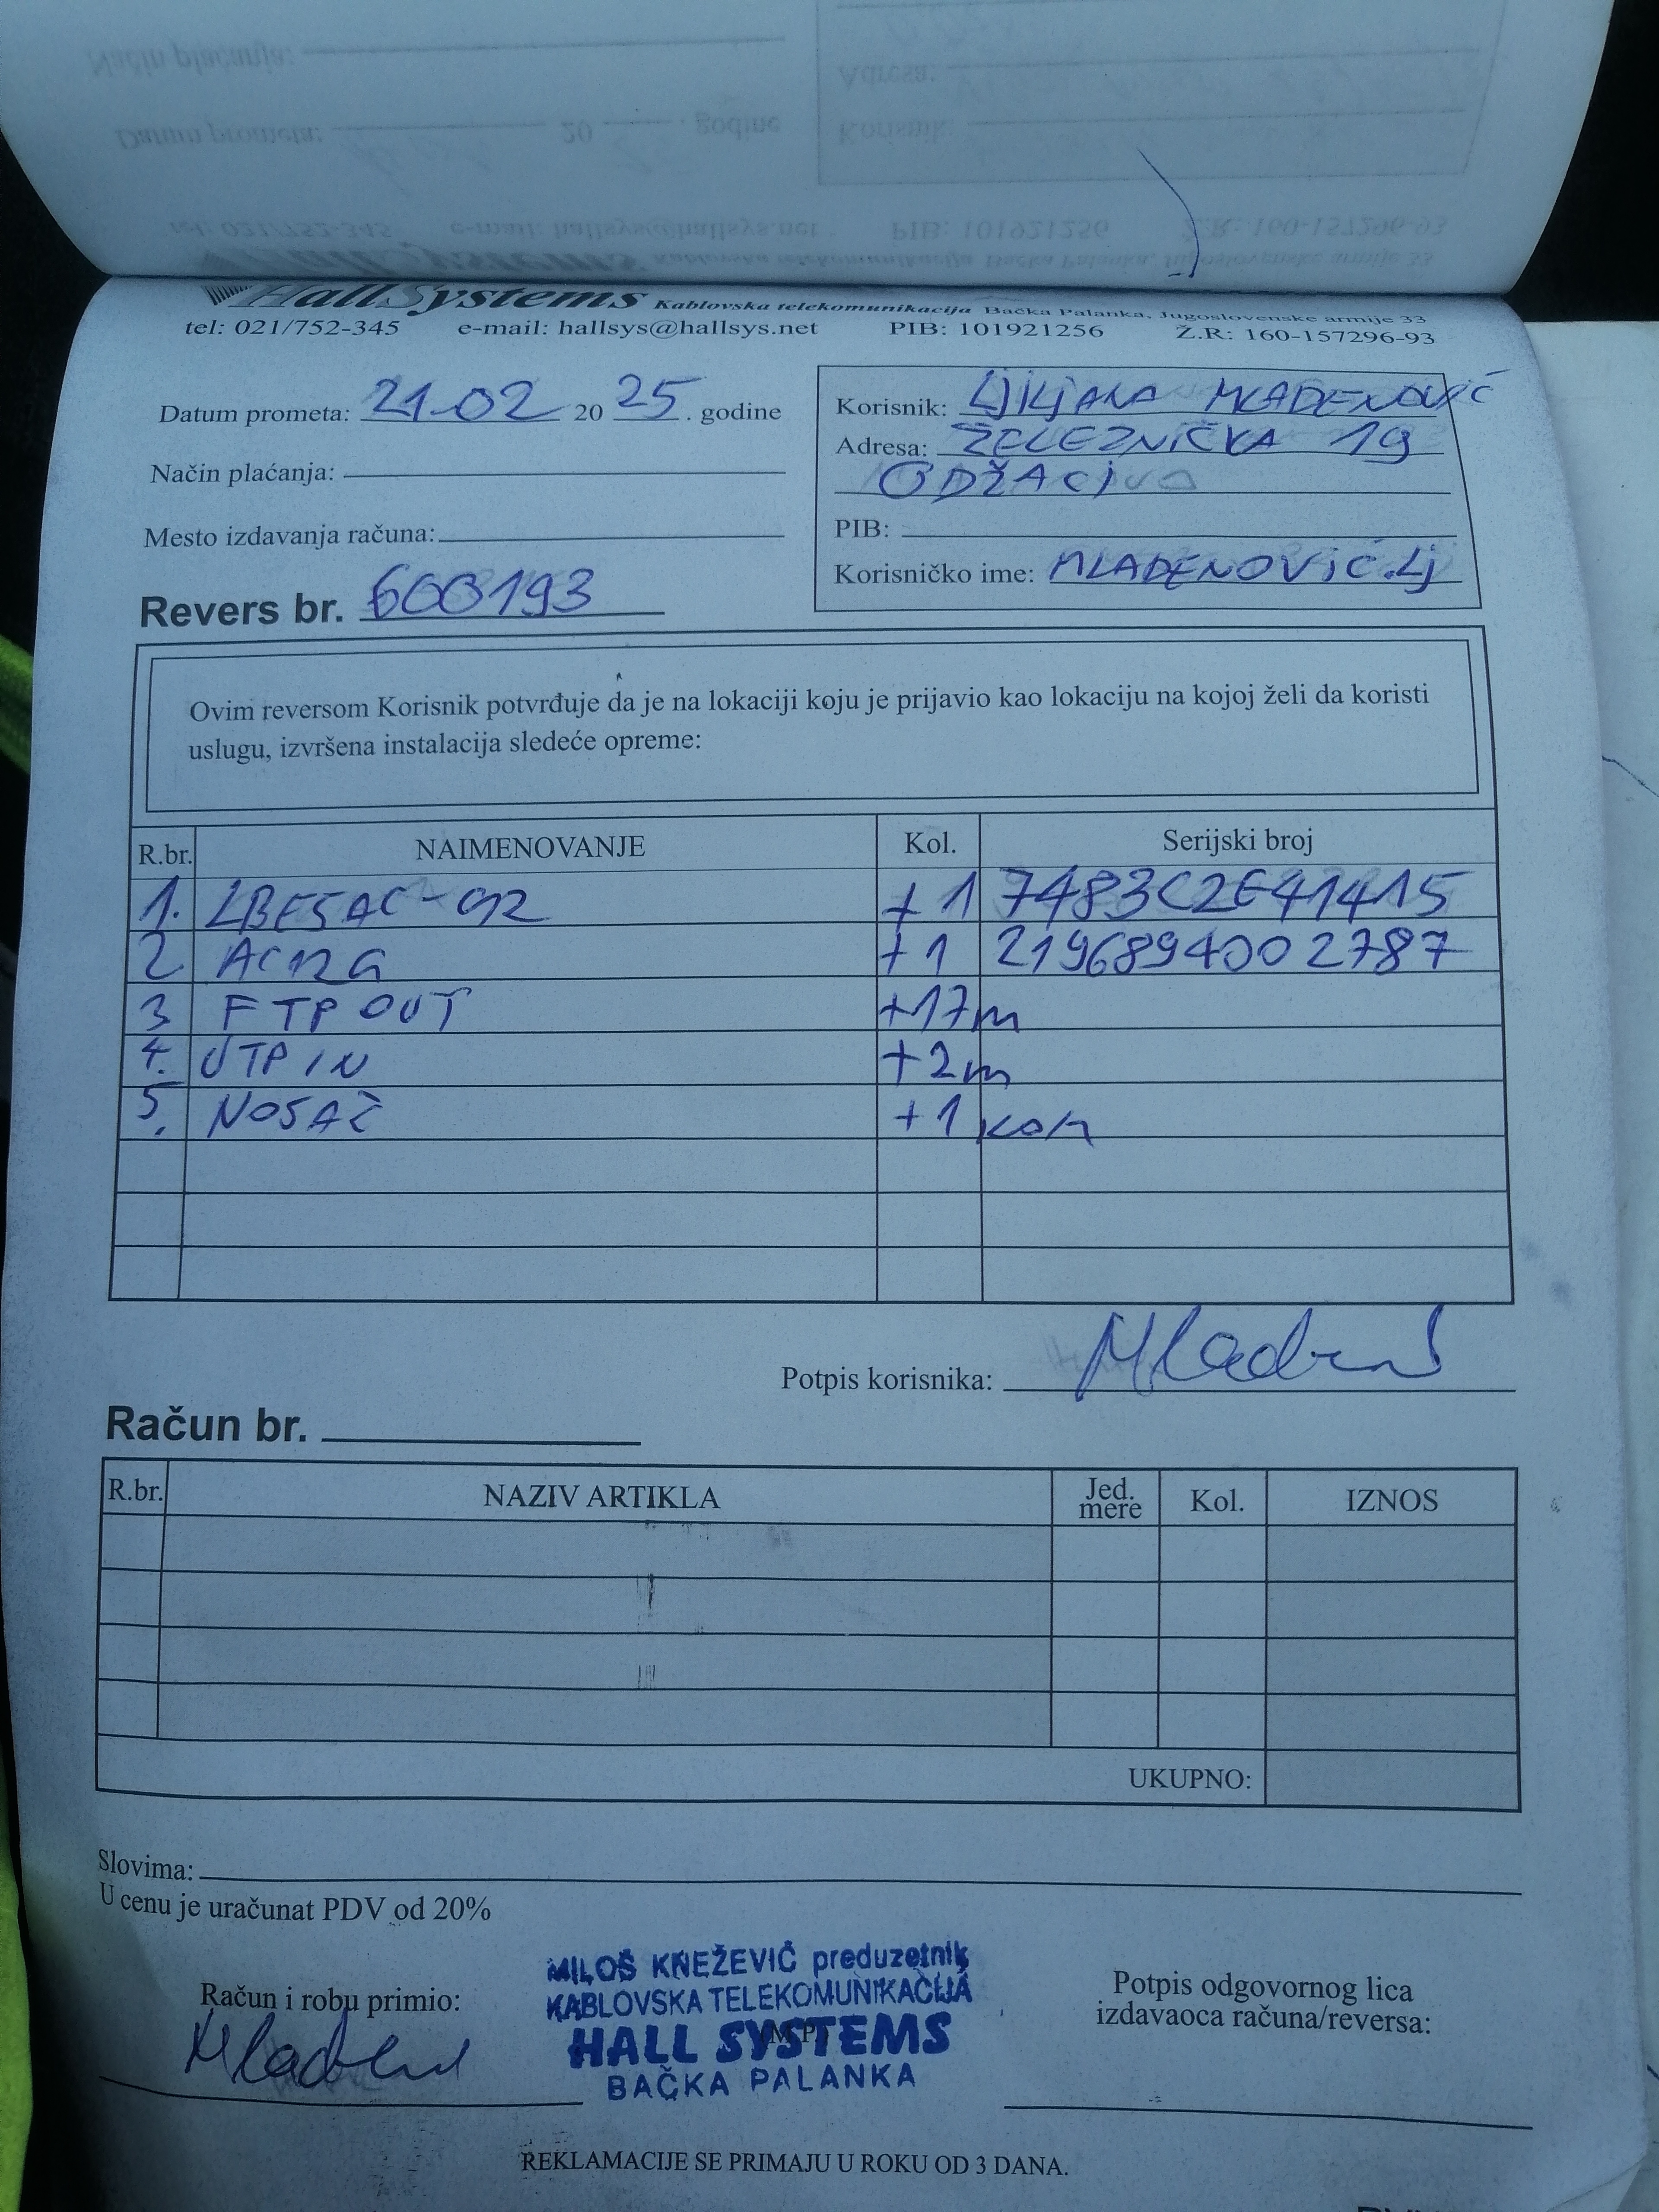 Hall Systems Kablovska telekomunikacija Bačka Palanka, Jugoslovenske armije 33
tel: 021/752-345 e-mail: hallsys@hallsys.net PIB: 101921256 Ž.R: 160-157296-93
Datum prometa: 21.02 20 25. godine
Način plaćanja:
Mesto izdavanja računa:
Revers br. 600193
Korisnik: LJILJANA MLADENOVIĆ
Adresa: ŽELEZNIČKA 19
ODŽACI
PIB:
Korisničko ime: MLADENOVIĆ.LJ
Ovim reversom Korisnik potvrđuje da je na lokaciji koju je prijavio kao lokaciju na kojoj želi da koristi
uslugu, izvršena instalacija sledeće opreme:
R.br. NAIMENOVANJE Kol. Serijski broj
1. LBE5AC-GN2 +1 7483C2E41415
2 AC12G +1 2196894002787
3 FTP OUT +17m
4. UTP IN +2m
5. NOSAČ +1 KOM
Potpis korisnika: Mladen
Račun br.
R.br. NAZIV ARTIKLA Jed. mere Kol. IZNOS
UKUPNO:
Slovima:
U cenu je uračunat PDV od 20%
Račun i robu primio:
MILOŠ KNEŽEVIĆ preduzetnik
KABLOVSKA TELEKOMUNIKACIJA
HALL SYSTEMS
(M.P.)
BAČKA PALANKA
Potpis odgovornog lica
izdavaoca računa/reversa:
REKLAMACIJE SE PRIMAJU U ROKU OD 3 DANA.